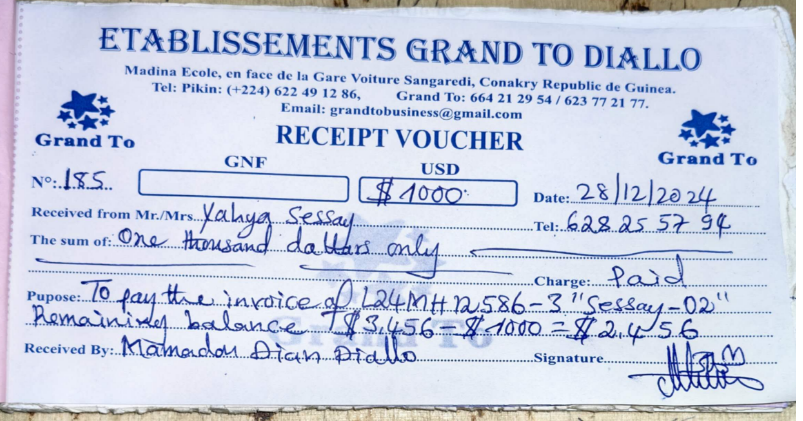 ETABLISSEMENTS GRAND TO DIALLO
Madina Ecole, en face de la Gare Voiture Sangaredi, Conakry Republic de Guinea.
Tel: Pikin: (+224) 622 49 12 86, Grand To: 664 21 29 54 / 623 77 21 77.
Email: grandtobusiness@gmail.com
Grand To
RECEIPT VOUCHER
Grand To
GNF USD
N°: 185 $ 1000 Date: 28/12/2024
Received from Mr./Mrs. Yahya Sessay Tel: 628 25 57 94
The sum of: One thousand dollars only
Charge: Paid
Pupose: To pay the invoice of L24MH12586-3 "Sessay-02"
Remaining balance $3.456-$1000=$2.456
Received By: Mamadou Dian Diallo Signature
Grand To